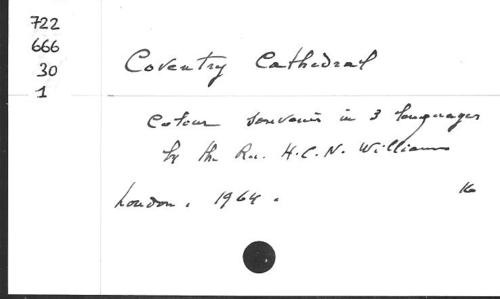 722
666
30
1
Coventry Cathedral
Colour souvenir in 3 languages
by the Rev. H.C.N. Williams
London. 1964.
16